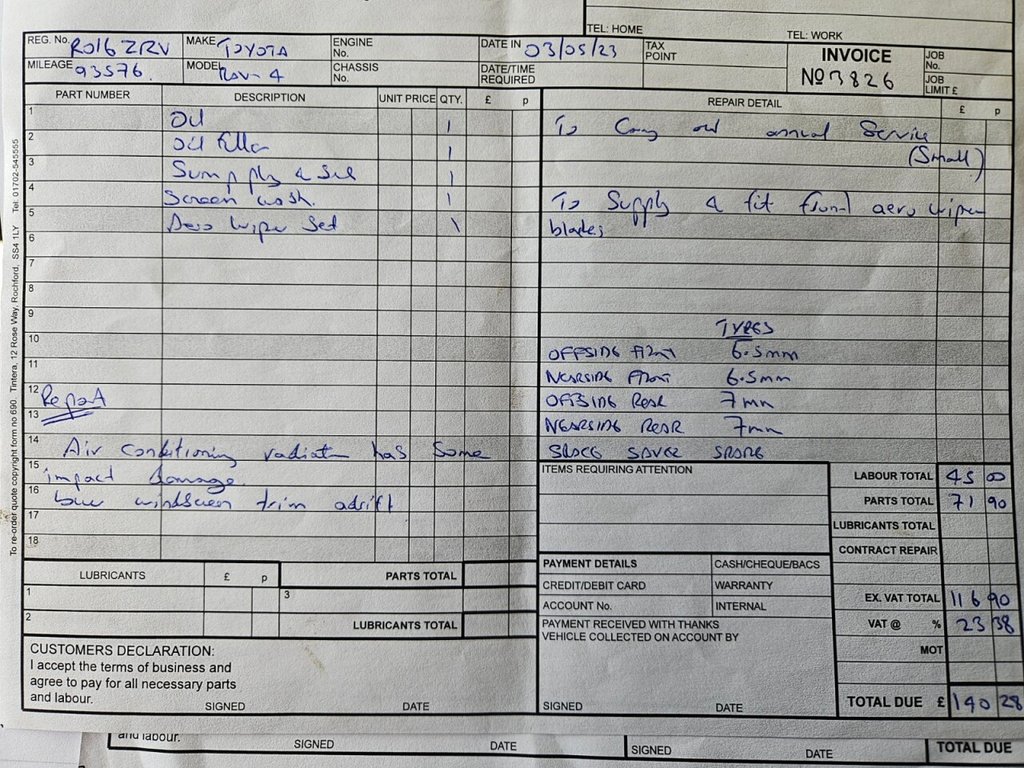 TEL: HOME TEL: WORK
REG. No. RO16 ZRV MAKE TOYOTA ENGINE No. DATE IN 03/05/23 TAX POINT INVOICE JOB No.
MILEAGE 93576. MODEL RAV-4 CHASSIS No. DATE/TIME REQUIRED No 3826 JOB LIMIT £
PART NUMBER DESCRIPTION UNIT PRICE QTY. £ p REPAIR DETAIL £ p
1 Oil 1
2 Oil filter 1
3 Sump plug & seal 1
4 Screen wash. 1
5 Aero wiper set 1
6
7
8
9
10
11
12 Report
13
14 Air conditioning radiator has some
15 impact damage.
16 windscreen trim adrift
17
18
To Carry out annual Service
(Small)
To Supply & fit front aero wiper
blades
TYRES
OFFSIDE FRONT 6.5mm
NEARSIDE FRONT 6.5mm
OFFSIDE REAR 7mm
NEARSIDE REAR 7mm
SPACE SAVER SPARE
ITEMS REQUIRING ATTENTION
LABOUR TOTAL 45 00
PARTS TOTAL 71 90
LUBRICANTS TOTAL
CONTRACT REPAIR
EX. VAT TOTAL 116 90
VAT @ % 23 38
MOT
TOTAL DUE £ 140 28
LUBRICANTS £ p PARTS TOTAL
1 3
2 LUBRICANTS TOTAL
PAYMENT DETAILS CASH/CHEQUE/BACS
CREDIT/DEBIT CARD WARRANTY
ACCOUNT No. INTERNAL
PAYMENT RECEIVED WITH THANKS
VEHICLE COLLECTED ON ACCOUNT BY
SIGNED DATE
CUSTOMERS DECLARATION:
I accept the terms of business and
agree to pay for all necessary parts
and labour.
SIGNED DATE
To re-order quote copyright form no 690. Tintera, 12 Rose Way, Rochford, SS4 1LY Tel: 01702-545555
and labour.
SIGNED DATE SIGNED DATE TOTAL DUE